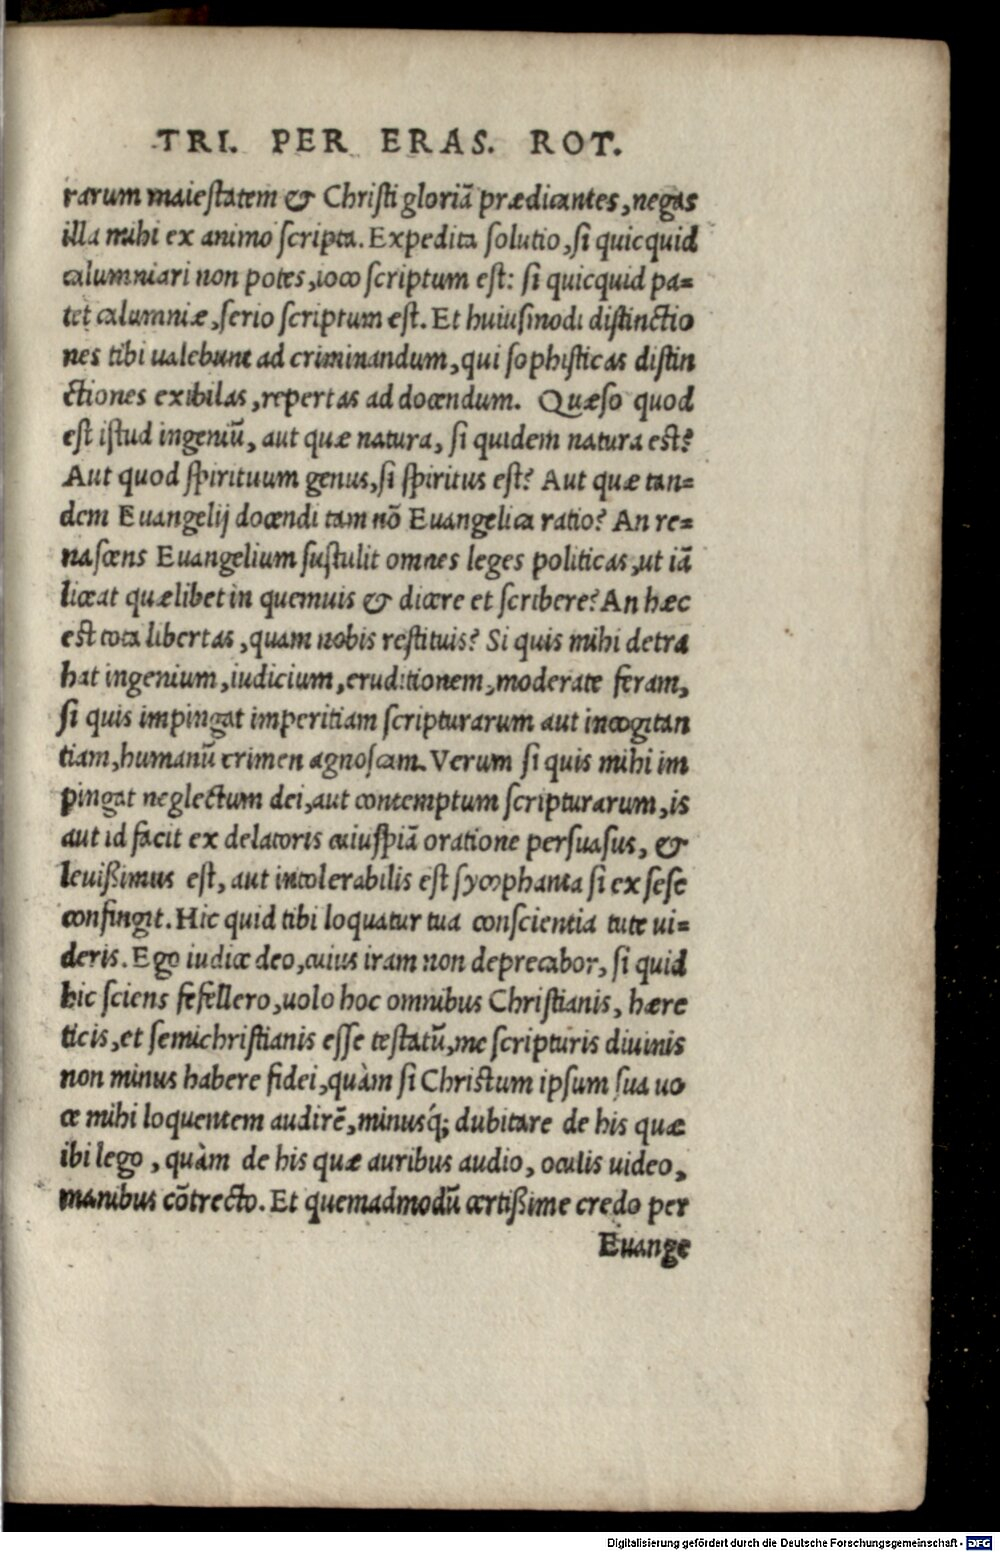 TRI. PER ERAS. ROT.
rarum maiestatem & Christi gloriā prædicantes, negas
illa mihi ex animo scripta. Expedita solutio, si quicquid
calumniari non potes, ioco scriptum est: si quicquid pa=
tet calumniæ, serio scriptum est. Et huiusmodi distinctio
nes tibi ualebunt ad criminandum, qui sophisticas distin
ctiones exibilas, repertas ad docendum. Quæso quod
est istud ingeniū, aut quæ natura, si quidem natura est?
Aut quod spirituum genus, si spiritus est? Aut quæ tan=
dem Euangelij docendi tam nō Euangelica ratio? An re=
nascens Euangelium sustulit omnes leges politicas, ut iā
liceat quælibet in quemuis & dicere et scribere? An hæc
est tota libertas, quam nobis restituis? Si quis mihi detra
hat ingenium, iudicium, eruditionem, moderate feram,
si quis impingat imperitiam scripturarum aut incogitan
tiam, humanū crimen agnoscam. Verum si quis mihi im
pingat neglectum dei, aut contemptum scripturarum, is
aut id facit ex delatoris cuiuspiā oratione persuasus, &
leuißimus est, aut intolerabilis est sycophanta si ex sese
confingit. Hic quid tibi loquatur tua conscientia tute ui=
deris. Ego iudice deo, cuius iram non deprecabor, si quid
hic sciens fefellero, uolo hoc omnibus Christianis, hære
ticis, et semichristianis esse testatū, me scripturis diuinis
non minus habere fidei, quàm si Christum ipsum sua uo
ce mihi loquentem audirē, minusq́; dubitare de his quæ
ibi lego, quàm de his quæ auribus audio, oculis uideo,
manibus cōtrecto. Et quemadmodū certißime credo per
Euange
Digitalisierung gefördert durch die Deutsche Forschungsgemeinschaft - DFG